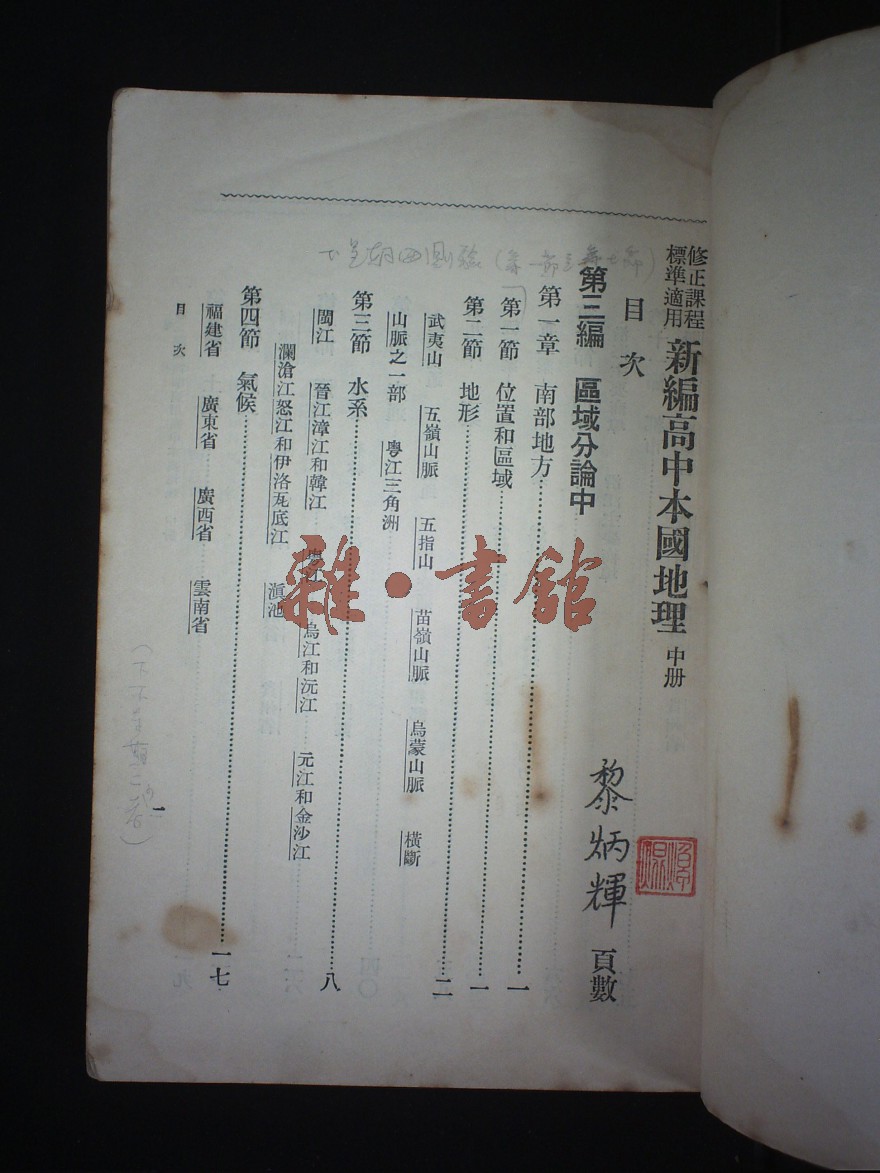 修正課程標準適用 新編高中本國地理 中册
目次
黎炳輝
頁數
第三編 區域分論中
第一章 南部地方 一
第一節 位置和區域 一
第二節 地形 二
武夷山 五嶺山脈 五指山 苗嶺山脈 烏蒙山脈 橫斷
山脈之一部 粵江三角洲
第三節 水系 八
閩江 晉江漳江和韓江 粵江 烏江和沅江 元江和金沙江
瀾滄江怒江和伊洛瓦底江 滇池
第四節 氣候 一七
福建省 廣東省 廣西省 雲南省
目次
一
雜·書館